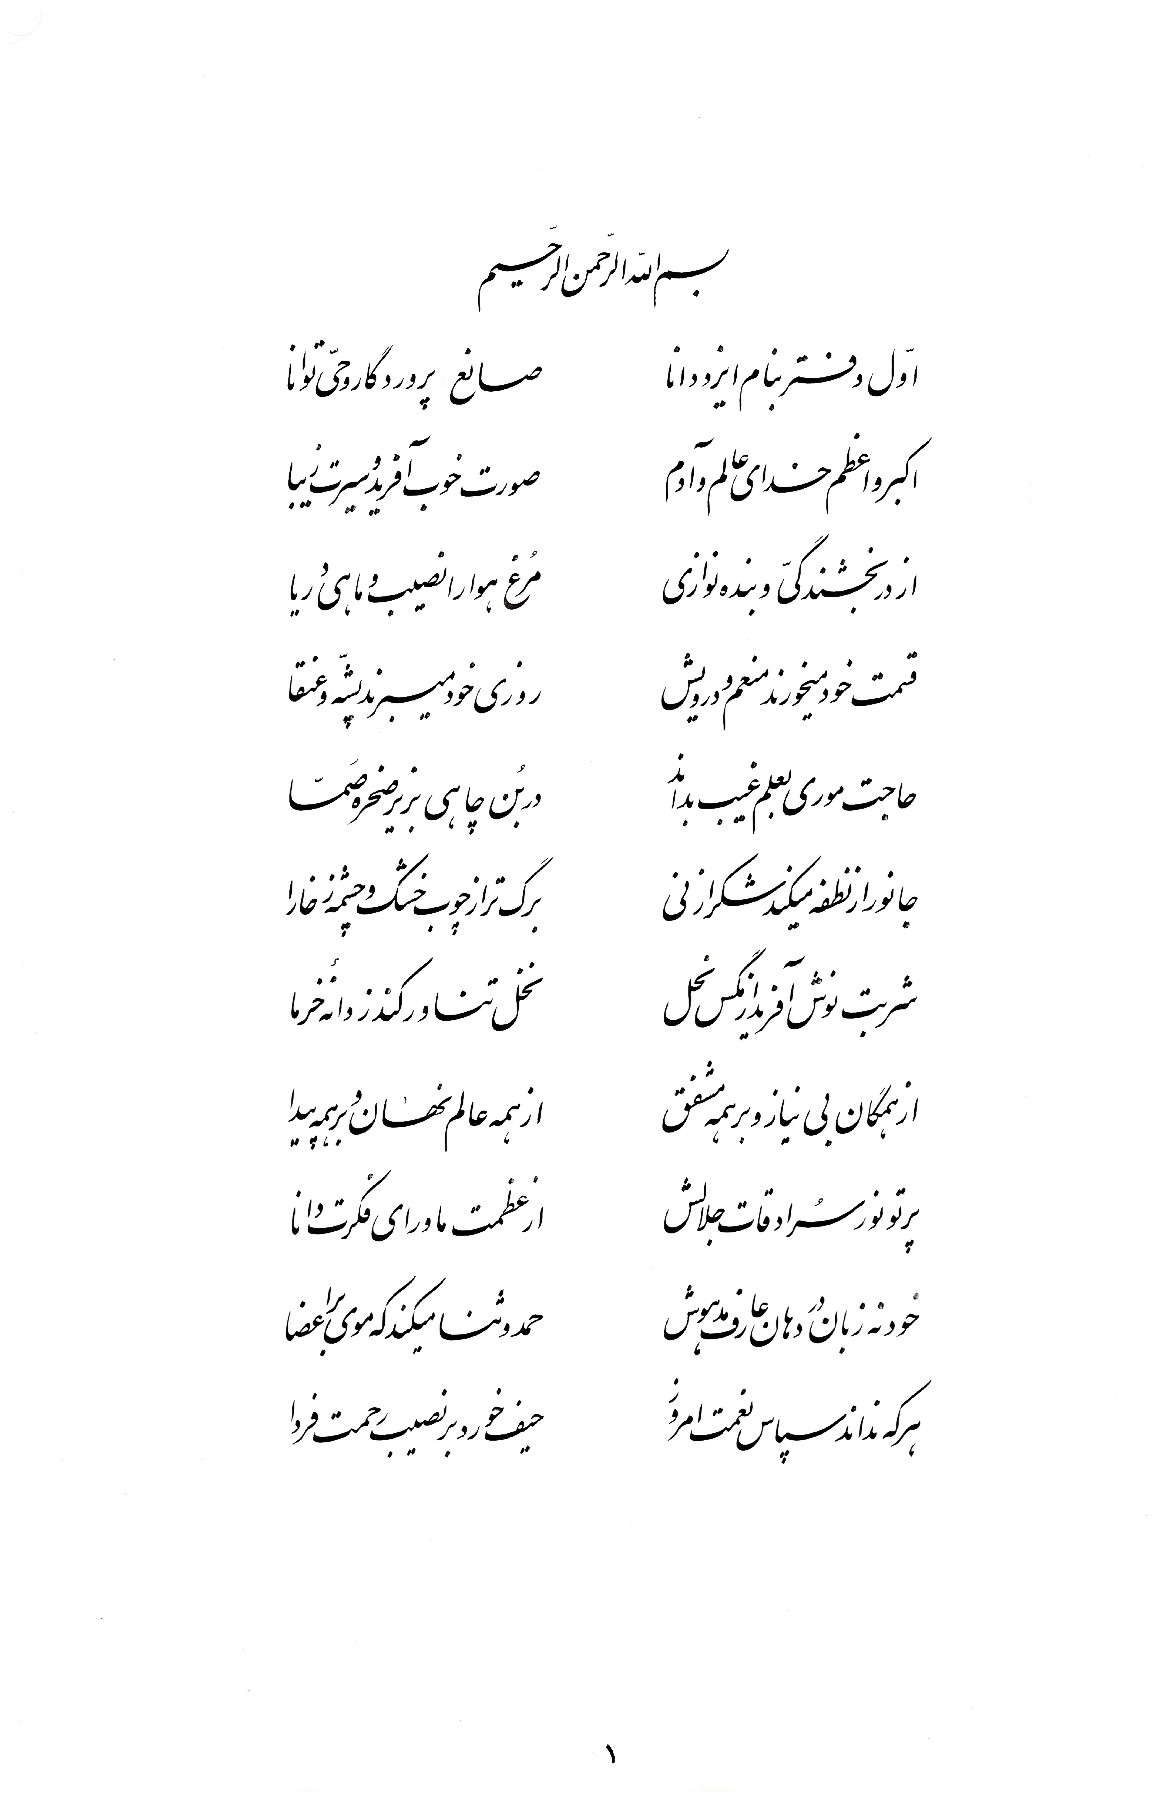 بسم الله الرّحمن الرّحیم
اوّل دفتر بنام ایزد دانا صانع پروردگار و حیّ توانا
اکبر و اعظم خدای عالم و آدم صورت خوب آفرید و سیرت زیبا
از در بخشندگیّ و بنده نوازی مُرغ هوا را نصیب و ماهی دریا
قسمت خود میخورند منعم و درویش روزی خود میبرند پشّه و عنقا
حاجت موری بعلم غیب بداند در بُن چاهی بزیر صخره صَمّا
جانور از نطفه میکند شکر از نی برگ تر از چوب خشک و چشمه ز خارا
شربت نوش آفرید از مگس نحل نخل تناور کند ز دانه خُرما
از همگان بی نیاز و بر همه مشفق از همه عالم نهان و بر همه پیدا
پرتو نور سُرادقات جلالش از عظمت ماورای فکرت دانا
خود نه زبان در دهان عارف مدهوش حمد و ثنا میکند که موی بر اعضا
هر که نداند سپاس نعمت امروز حیف خورد بر نصیب رحمت فردا
۱